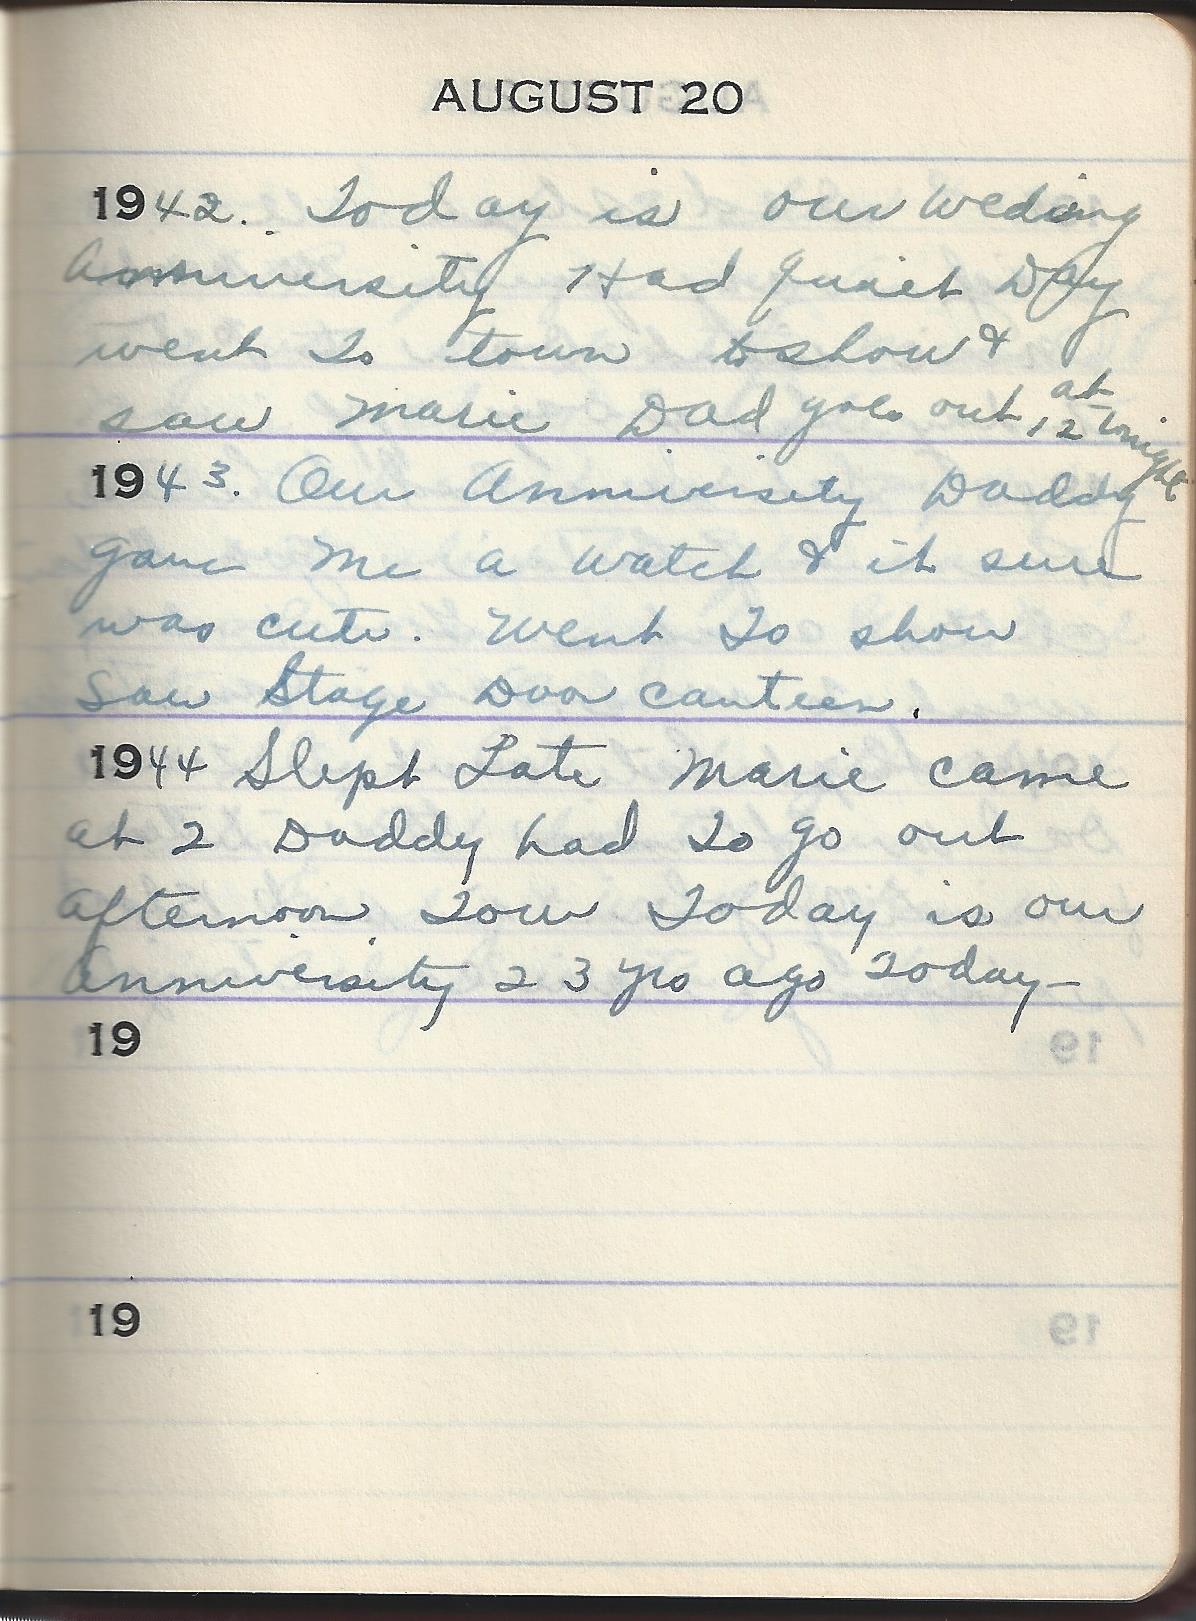 AUGUST 20
1942. Today is our Weding
Anniversity Had quiet Day
went to town to show &
saw Marie Dad goes out at 12 tonight
1943. Our Anniversity Daddy
gave Me a Watch & it sure
was cute. Went to show
Saw Stage Door canteen.
1944 Slept Late Marie came
at 2 Daddy had to go out
afternoon Tour Today is our
Anniversity 23 yrs ago Today—
19
19